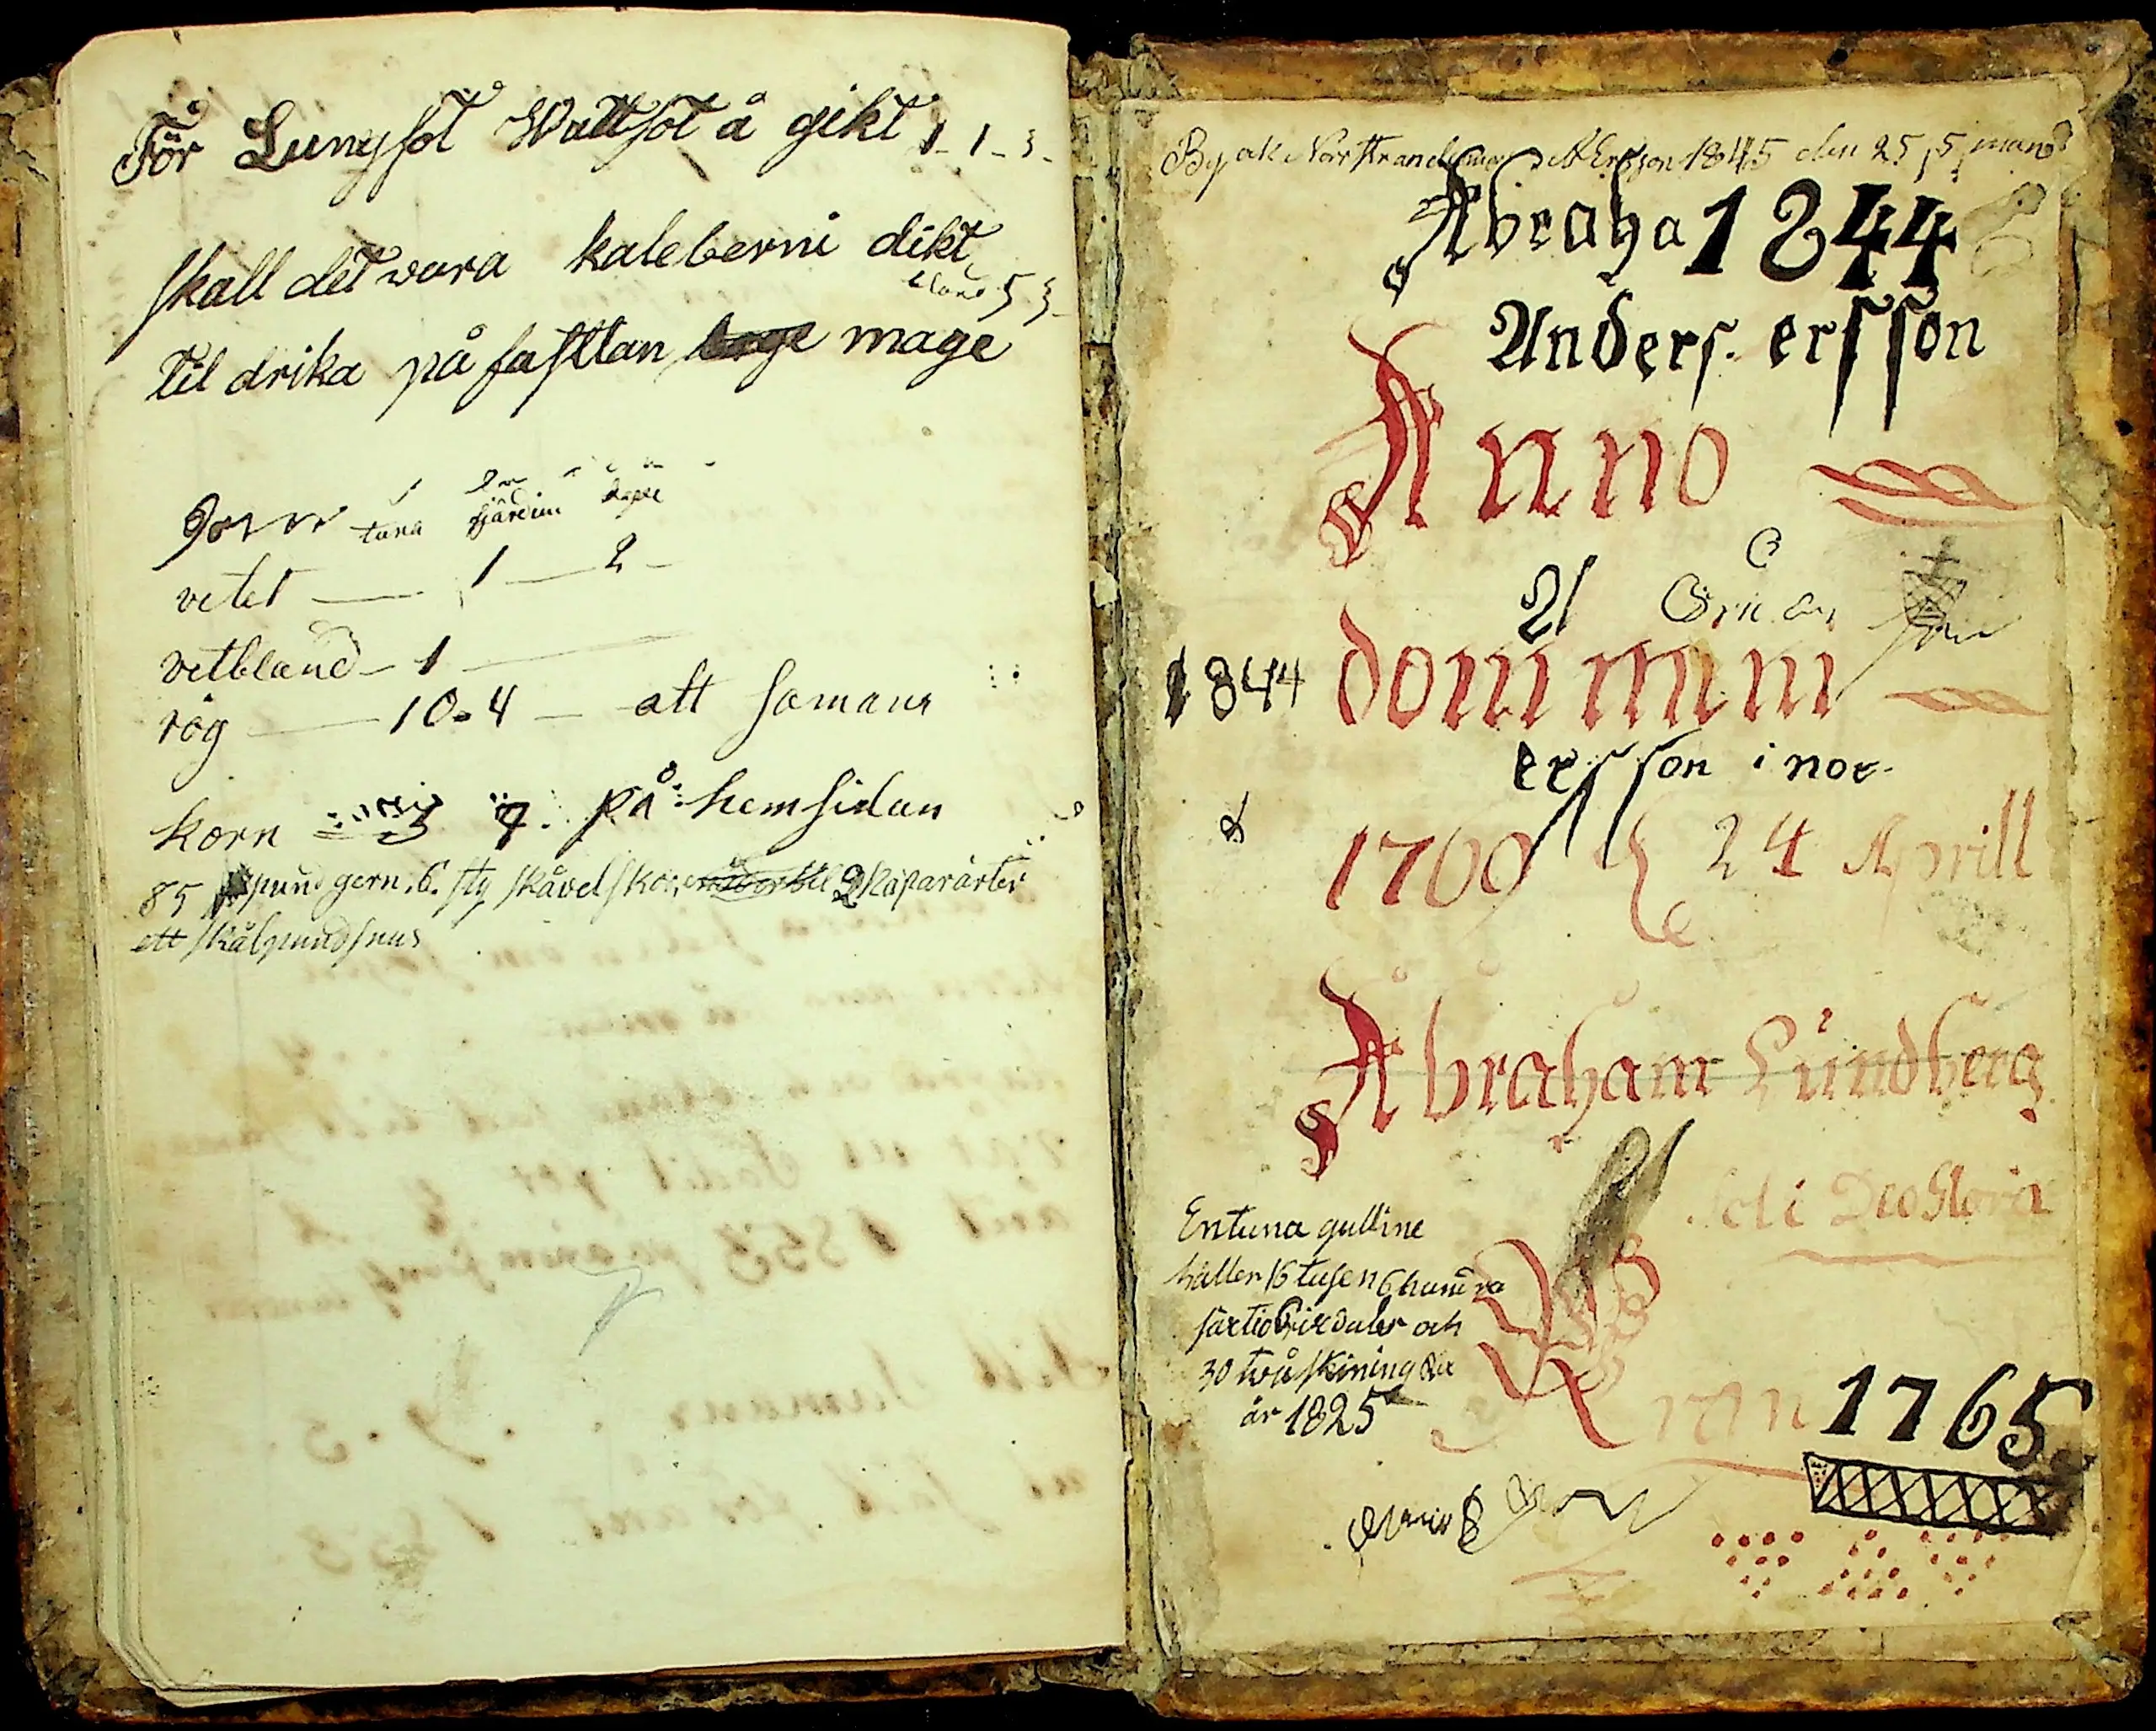 För Lungsot Wattsot å gikt 1-1-3-
skall det wara kaleberni dikt
5 3-
til drika på fasttan mage
tuna fjärdin kape
vetet — 1 — 2 -
vetbland - 1 —
råg — 10.4 — att samans
korn 3 7. på hemsidan
85 pund gern. 6. sty skåvelskor, 2 kaparärter
ett skålpund snus
By ok Norrstrand A Ersson 1845 den 25, 5, mand
Abraha 1844
Anders. ersson
Anno
21
1844 domini
ersson i nor-
1769 24 Aprill
Abraham Lundberg
Soli Deo Gloria
En tuna gulline
håller 16 tusen 6 hundra
färtio 6 rixdaler och
30 twå skining
år 1825
1765